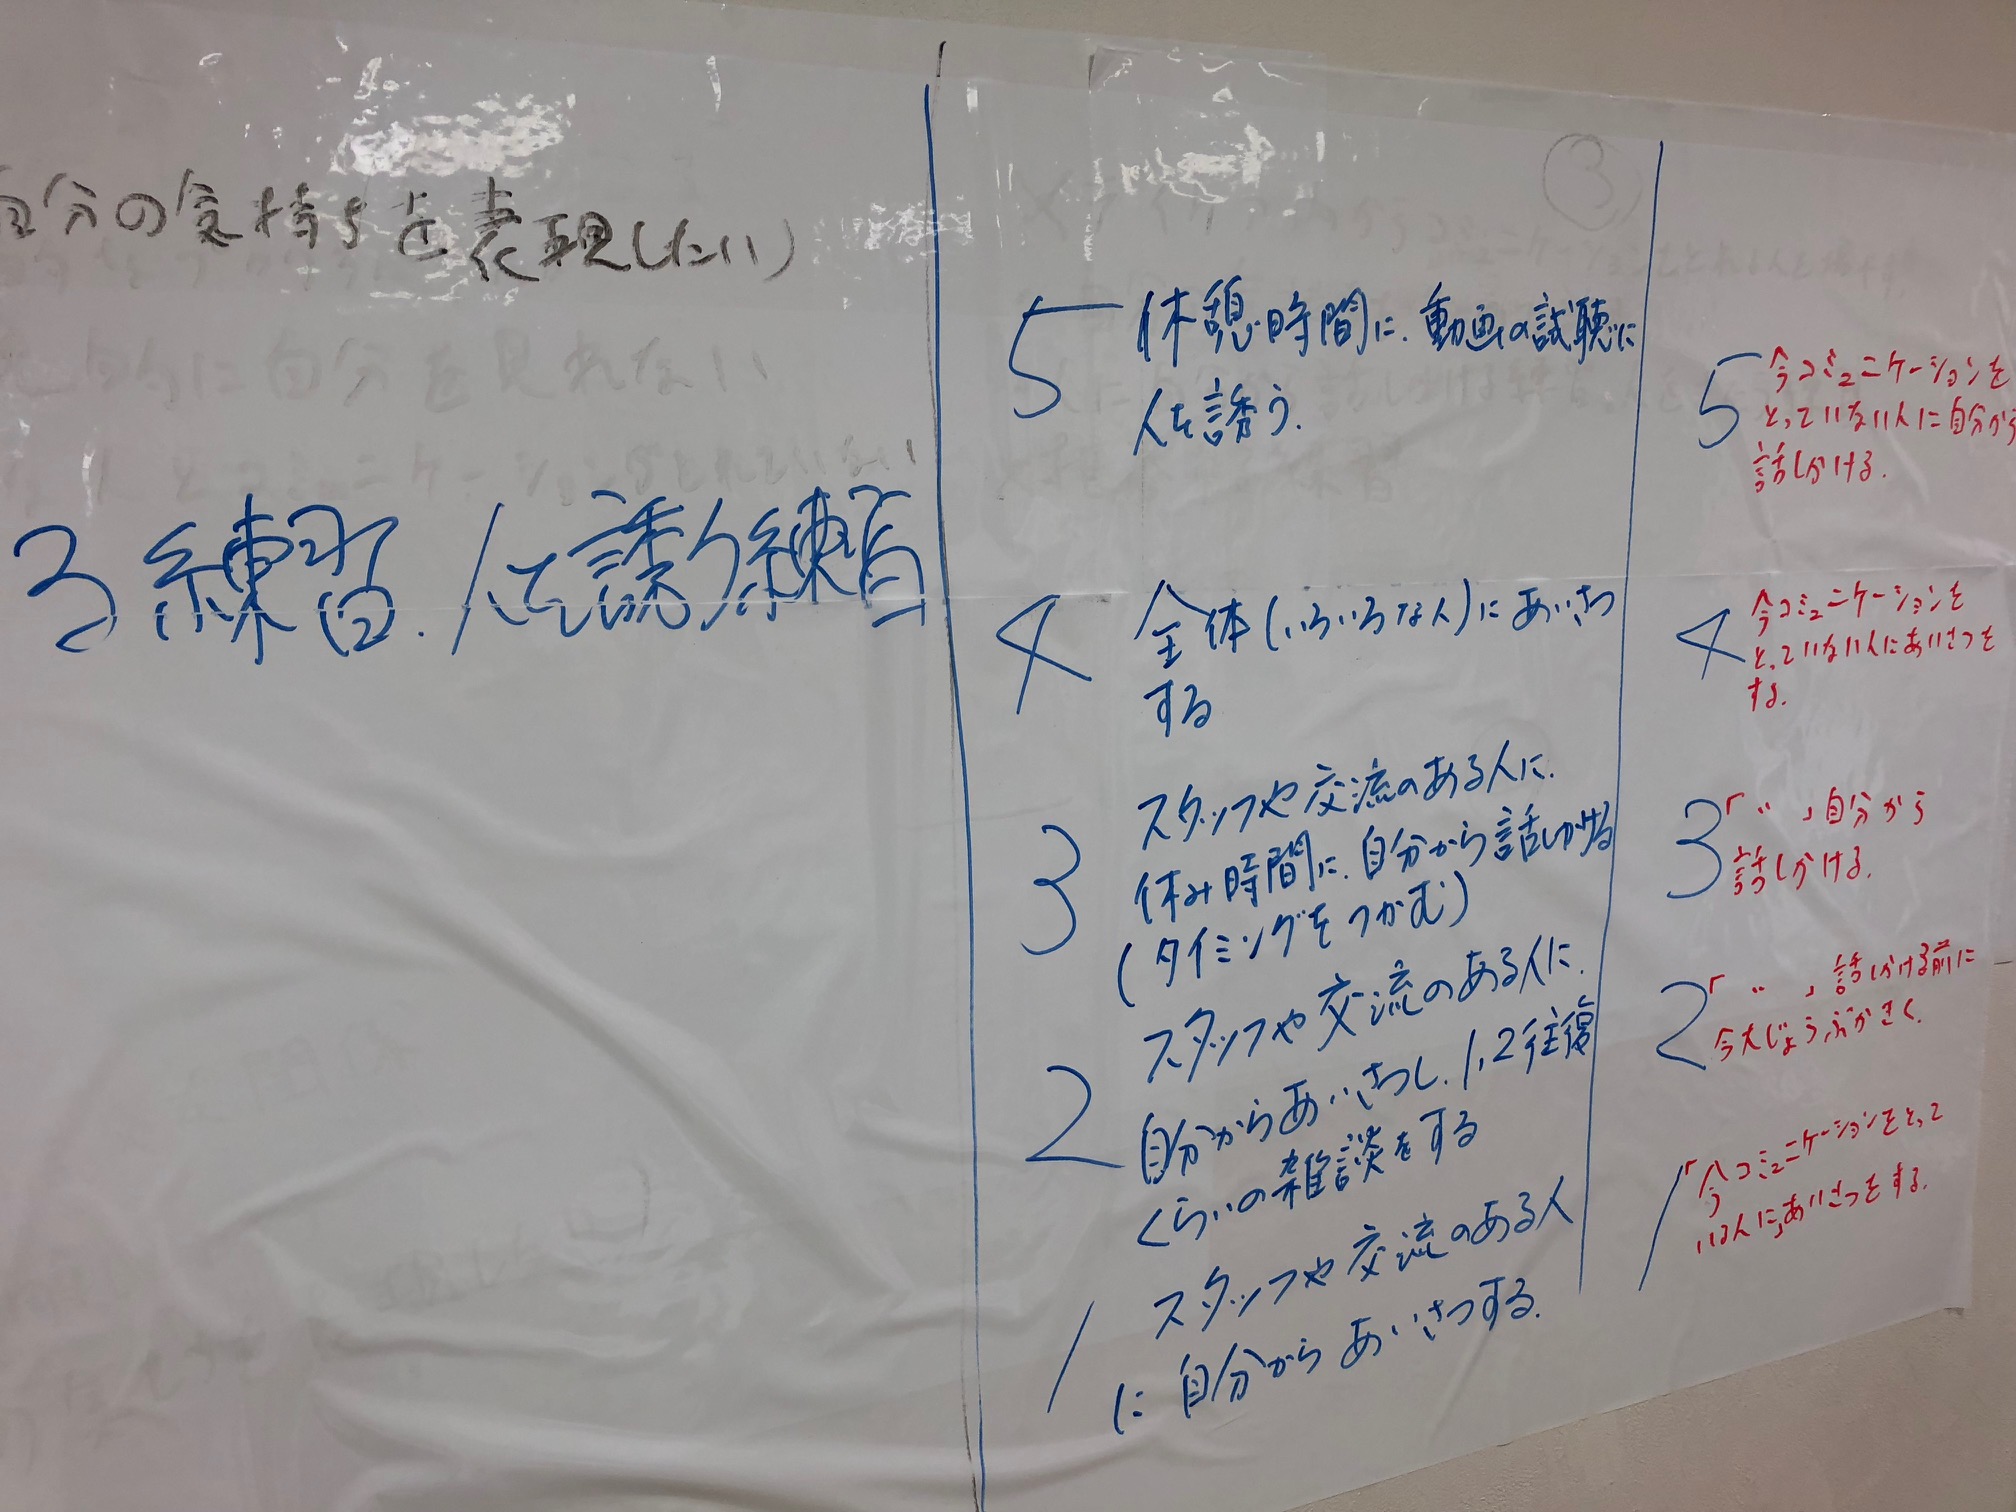 自分の気持ちを表現したい)
的に自分を見れない
とコミュニケーションがとれていない
る練習.人を誘う練習
③
5 休憩時間に.動画の試聴に
人を誘う.
4 全体(いろいろな人)にあいさつ
する
3 スタッフや交流のある人に.
休み時間に.自分から話しかける
(タイミングをつかむ)
2 スタッフや交流のある人に.
自分からあいさつし.1,2往復
くらいの雑談をする
1 スタッフや交流のある人
に自分からあいさつする.
5 今コミュニケーションを
とっていない人に自分から
話しかける.
4 今コミュニケーションを
とっていない人にあいさつを
する.
3「〃」自分から
話しかける.
2「〃」話しかける前に
今大じょうぶかきく.
1「今コミュニケーションをとって
いる人に」あいさつをする.